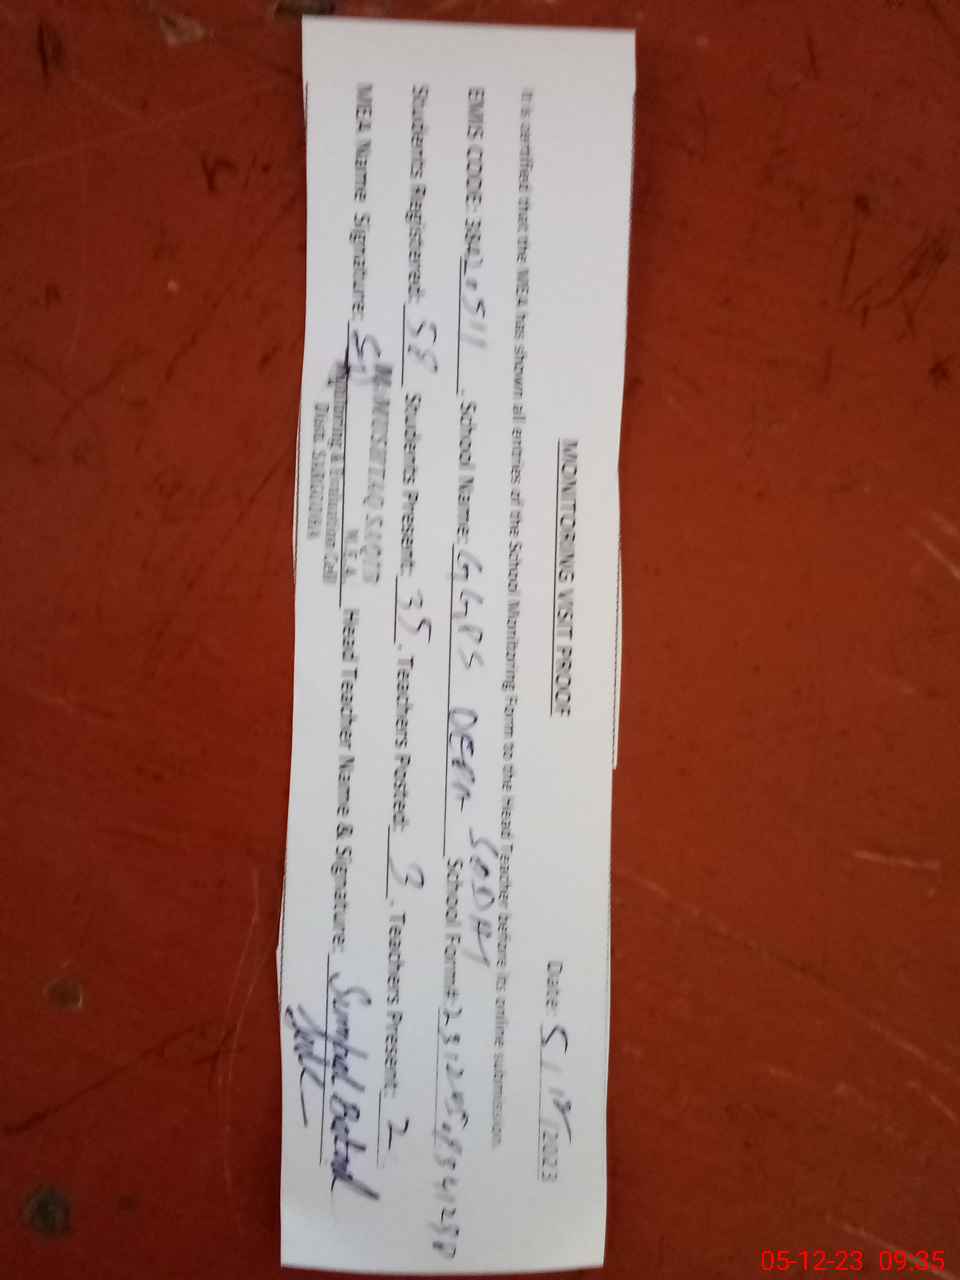 MONITORING VISIT PROOF
Date: 5/12/2023
It is certified that the MEA has shown all entries of the School Monitoring Form to the Head Teacher before its online submission.
EMIS CODE: 384 School Name: GGPS School Form#:
Students Registered: 58 Students Present: 35. Teachers Posted: 3. Teachers Present: 2
MEA Name Signature: Head Teacher Name & Signature:
M. MUSHTAQ SAQIB
M.E.A.
Monitoring & Evaluation Cell
Distt. SARGODHA
05-12-23 09:35